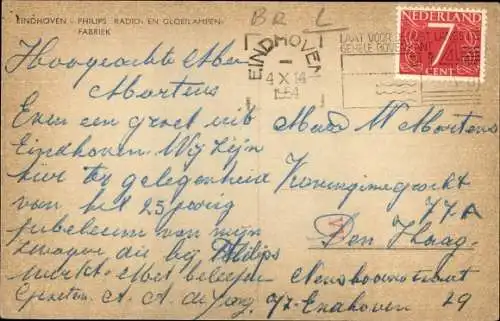 EINDHOVEN - PHILIPS RADIO- EN GLOEILAMPEN-
FABRIEK
BR L
NEDERLAND
7
CENT
EINDHOVEN
4 X 14
1954
LAAT VOOR
GEHELE
Hoogeachte Mev
Martens
Even een groet uit
Eindhoven. Wij zijn
hier ter gelegenheid
van het 25 jarig
jubileum van mijn
zwager die bij Philips
werkt. Met beleefde
Groeten A. A. de Jong
Mevr W Martens
Koninginnegracht
77A
Den Haag
Eindhoven 29